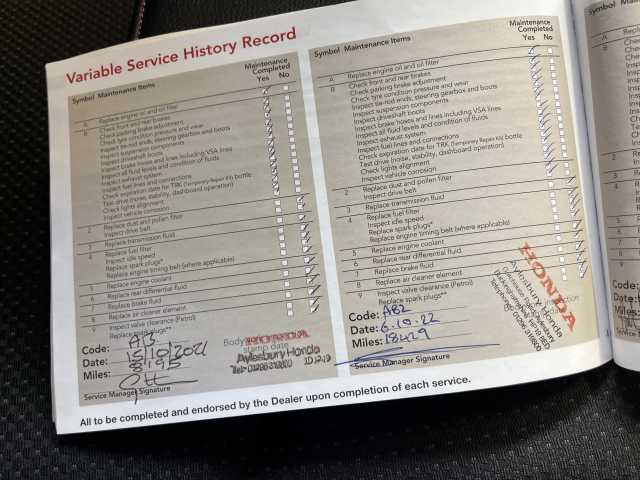 Variable Service History Record
Symbol Maintenance Items
Maintenance
Completed
Yes No
A Replace engine oil and oil filter
B Check front and rear brakes
Check parking brake adjustment
Check tyre condition pressure and wear
Inspect tie-rod ends, steering gearbox and boots
Inspect suspension components
Inspect driveshaft boots
Inspect brake hoses and lines including VSA lines
Inspect all fluid levels and condition of fluids
Inspect exhaust system
Inspect fuel lines and connections
Check expiration date for TRK (Temporary Repair Kit) bottle
Test drive (noise, stability, dashboard operation)
Check lights alignment
Inspect vehicle corrosion
2 Replace dust and pollen filter
Inspect drive belt
3 Replace transmission fluid
4 Replace fuel filter
Inspect idle speed
Replace spark plugs*
Replace engine timing belt (where applicable)
5 Replace engine coolant
6 Replace rear differential fluid
7 Replace brake fluid
8 Replace air cleaner element
9 Inspect valve clearance (Petrol)
Replace spark plugs**
Code: AB
Date: 15/10/2021
Miles: 8195
Service Manager Signature
Body
stamp date
HONDA
Aylesbury Honda
Symbol Maintenance Items
Maintenance
Completed
Yes No
A Replace engine oil and oil filter
B Check front and rear brakes
Check parking brake adjustment
Check tyre condition pressure and wear
Inspect tie-rod ends, steering gearbox and boots
Inspect suspension components
Inspect driveshaft boots
Inspect brake hoses and lines including VSA lines
Inspect all fluid levels and condition of fluids
Inspect exhaust system
Inspect fuel lines and connections
Check expiration date for TRK (Temporary Repair Kit) bottle
Test drive (noise, stability, dashboard operation)
Check lights alignment
Inspect vehicle corrosion
2 Replace dust and pollen filter
Inspect drive belt
3 Replace transmission fluid
4 Replace fuel filter
Inspect idle speed
Replace spark plugs*
Replace engine timing belt (where applicable)
5 Replace engine coolant
6 Replace rear differential fluid
7 Replace brake fluid
8 Replace air cleaner element
9 Inspect valve clearance (Petrol)
Replace spark plugs**
Code: AB2
Date: 6.10.22
Miles: 18429
Service Manager Signature
HONDA
Aylesbury Honda
All to be completed and endorsed by the Dealer upon completion of each service.